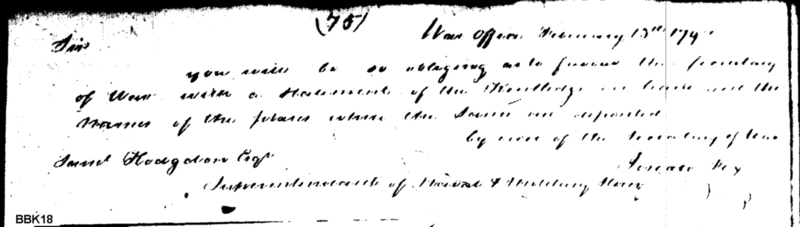 (75)
War Office February 13th 179
Sir
you will be so obliging as to favor the Secretary
of War with a Statement of the Kentledge on hand and the
names of the places where the same are deposited
by order of the Secretary of War
Saml Hodgdon Esqr
Superintendent of Naval & Military Stores
BBK18